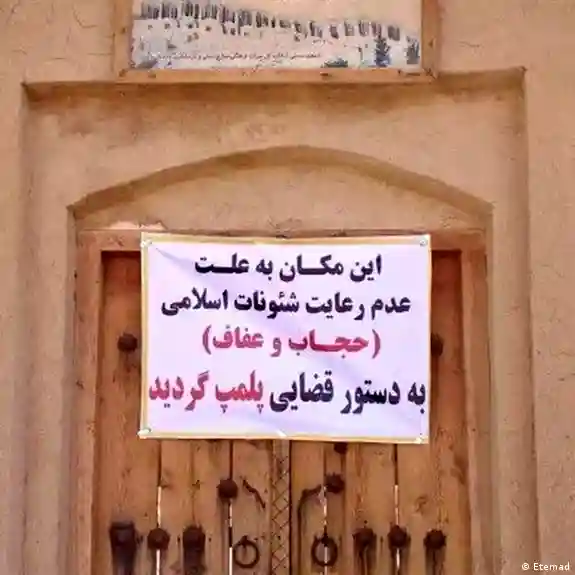 این مکان به علت
عدم رعایت شئونات اسلامی
(حجاب و عفاف)
به دستور قضایی پلمپ گردید
© Etemad